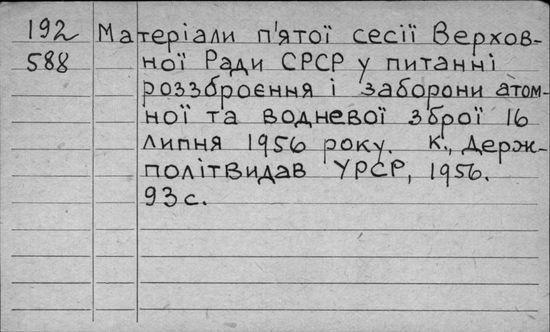 192 Матеріали п'ятої сесії Верхов-
588 ної Ради СРСР у питанні
роззброєння і заборони атом-
ної та водневої зброї 16
липня 1956 року. К., Держ-
політвидав УРСР, 1956.
93 с.